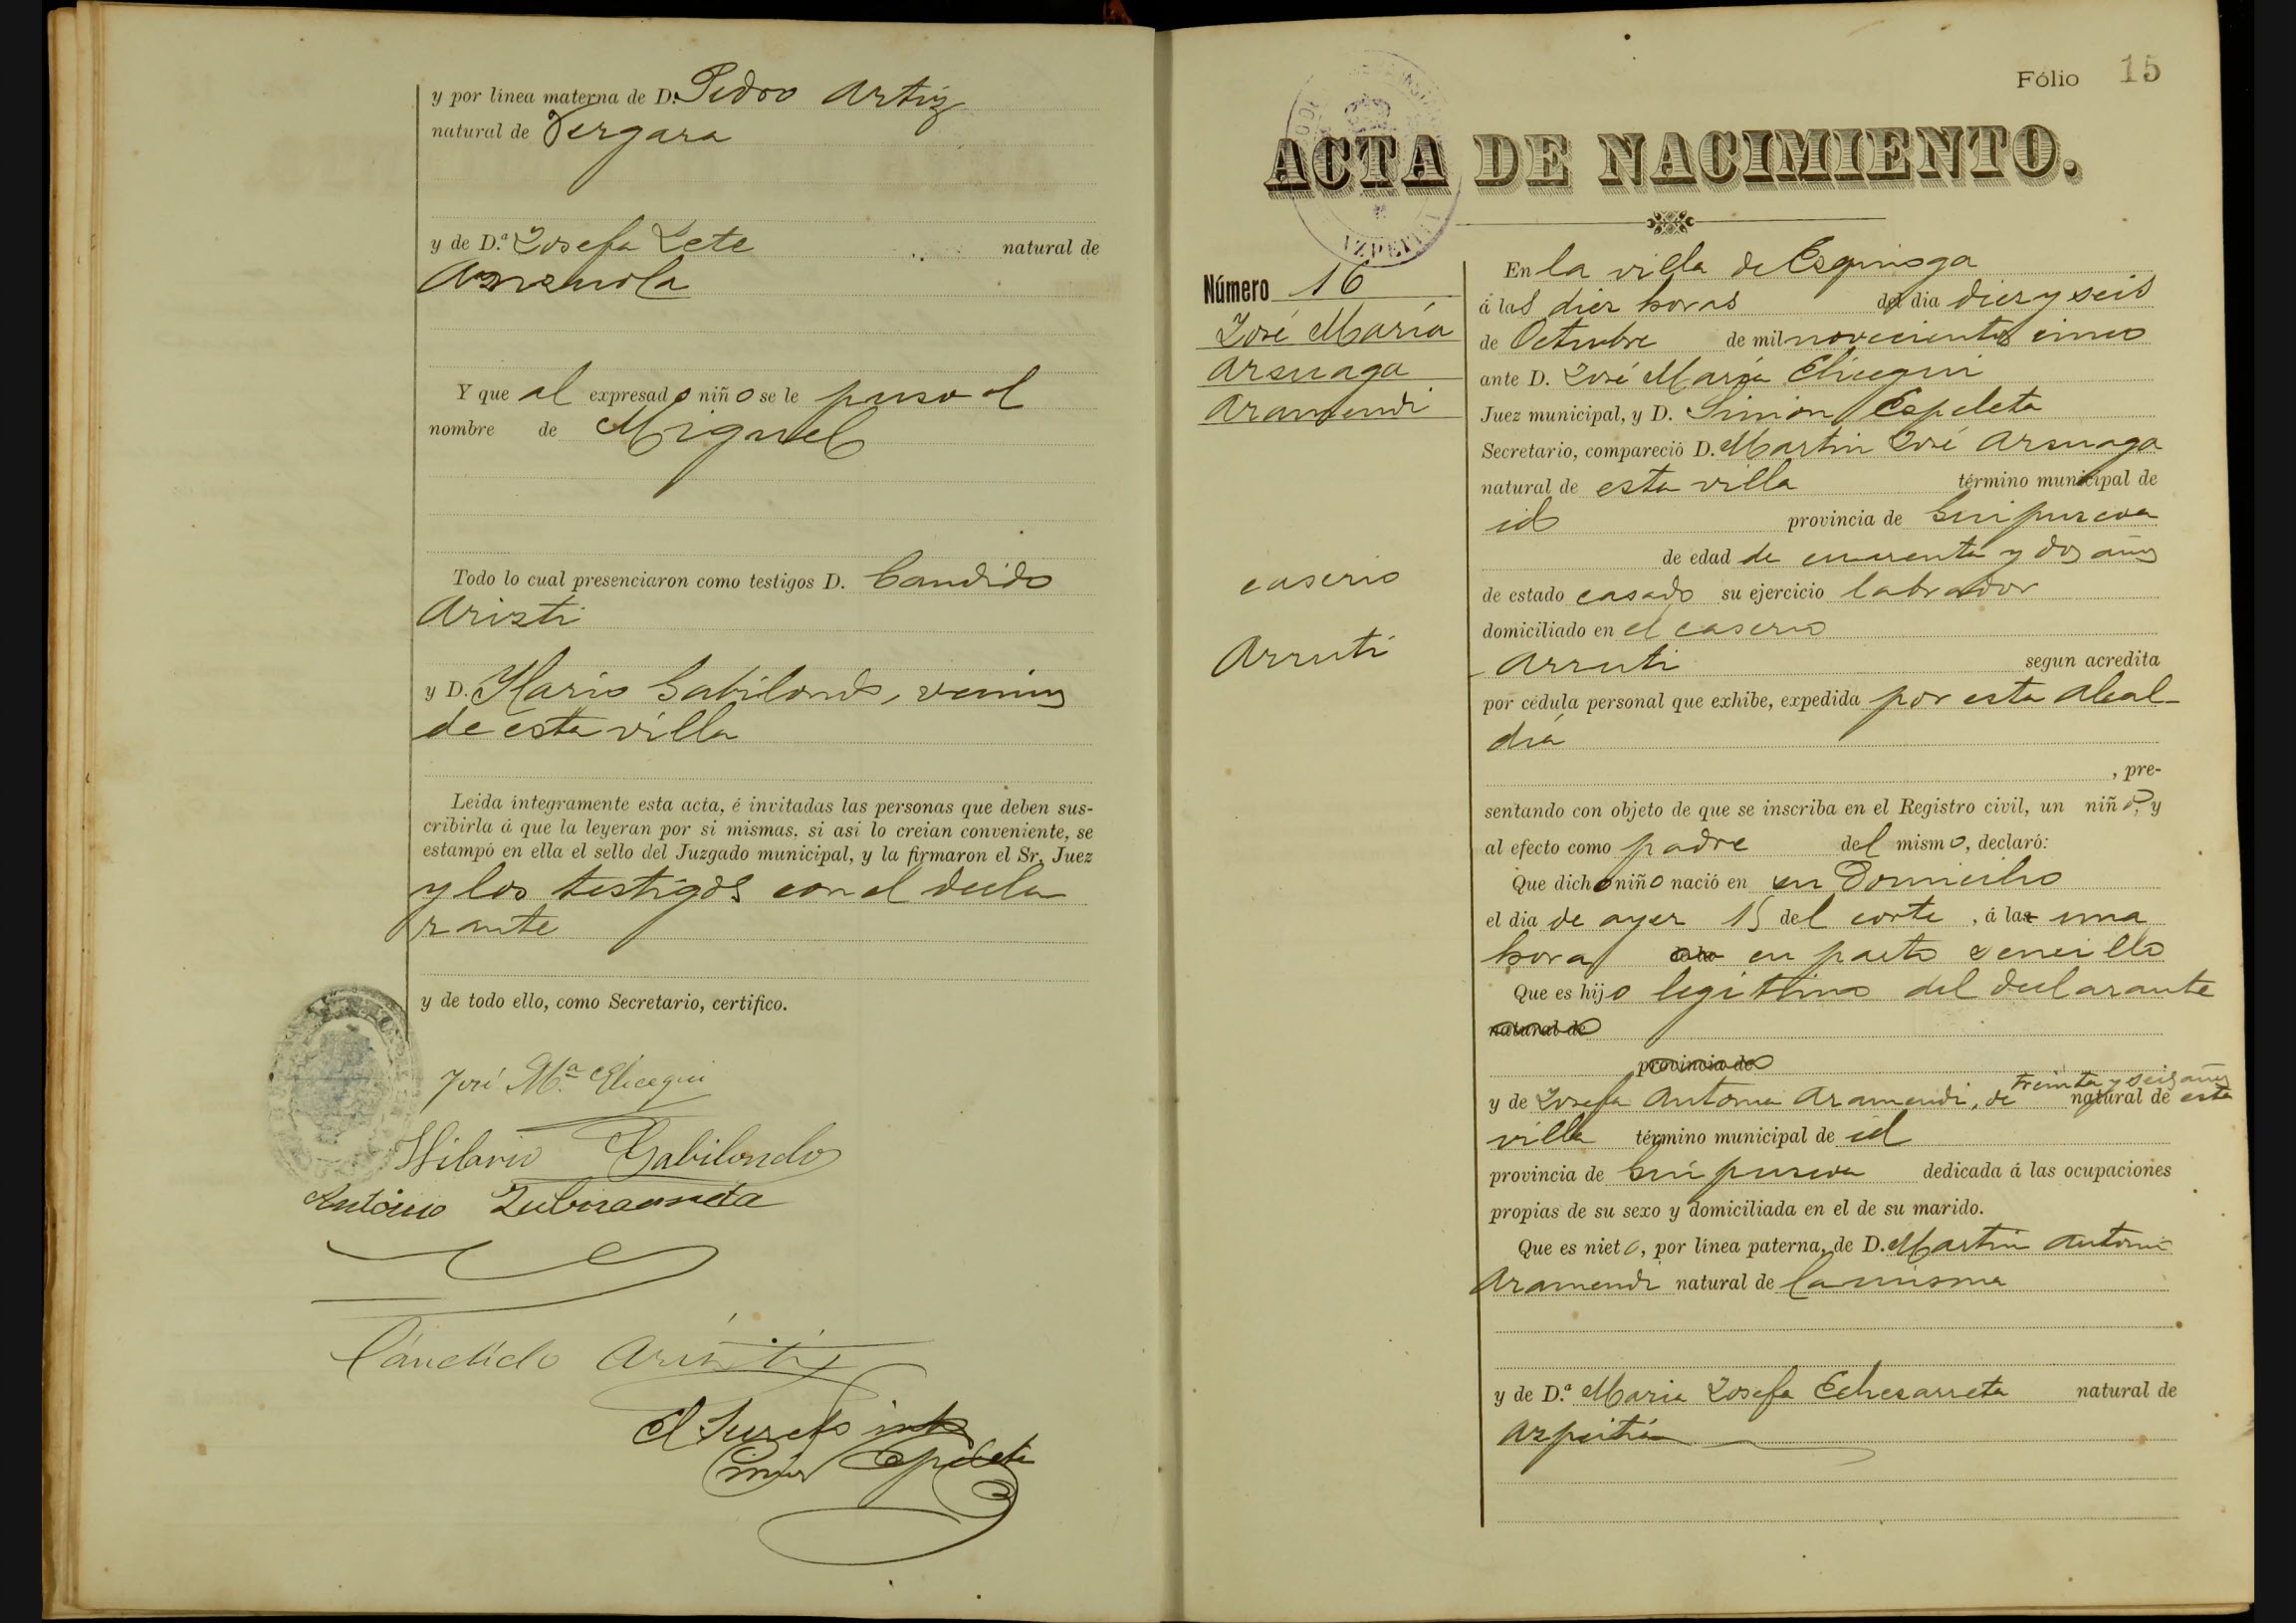 y por línea materna de D. Pedro Artiz
natural de Vergara
y de D.ª Josefa Lete natural de
Anzuola
Y que al expresado niño se le puso el
nombre de Miguel
Todo lo cual presenciaron como testigos D. Candido
Aristi
y D. Ylario Gabilondo, vecinos
de esta villa
Leida íntegramente esta acta, é invitadas las personas que deben sus-
cribirla á que la leyeran por si mismas, si asi lo creian conveniente, se
estampó en ella el sello del Juzgado municipal, y la firmaron el Sr. Juez
y los testigos con el decla
rante
y de todo ello, como Secretario, certifico.
José M.ª Elicegui
Hilario Gabilondo
Antonio
Cándido Aristi
El Secreto
Simón Espeleta
Fólio 15
ACTA DE NACIMIENTO.
AZPEITIA
Número 16
José María
Arsuaga
Aramendi
caserio
Arruti
En la villa de Ezquioga
á las diez horas del dia diez y seis
de Octubre de mil novecientos cinco
ante D. José María Elicegui
Juez municipal, y D. Simón Espeleta
Secretario, compareció D. Martin José Arsuaga
natural de esta villa término municipal de
id provincia de Guipuzcoa
de edad de cuarenta y dos años
de estado casado su ejercicio labrador
domiciliado en el caserio
Arruti segun acredita
por cédula personal que exhibe, expedida por esta Alcal-
día
, pre-
sentando con objeto de que se inscriba en el Registro civil, un niño, y
al efecto como padre del mismo, declaró:
Que dicho niño nació en su Domicilio
el dia de ayer 15 del corte, á la una
hora en parto sencillo
Que es hijo legitimo del declarante
natural de
provincia de
y de Josefa Antonia Aramendi, de treinta y seis años natural de esta
villa término municipal de id
provincia de Guipuzcoa dedicada á las ocupaciones
propias de su sexo y domiciliada en el de su marido.
Que es nieto, por línea paterna, de D. Martin Antonio
Aramendi natural de la misma
y de D.ª Maria Josefa Echezarreta natural de
Azpeitia